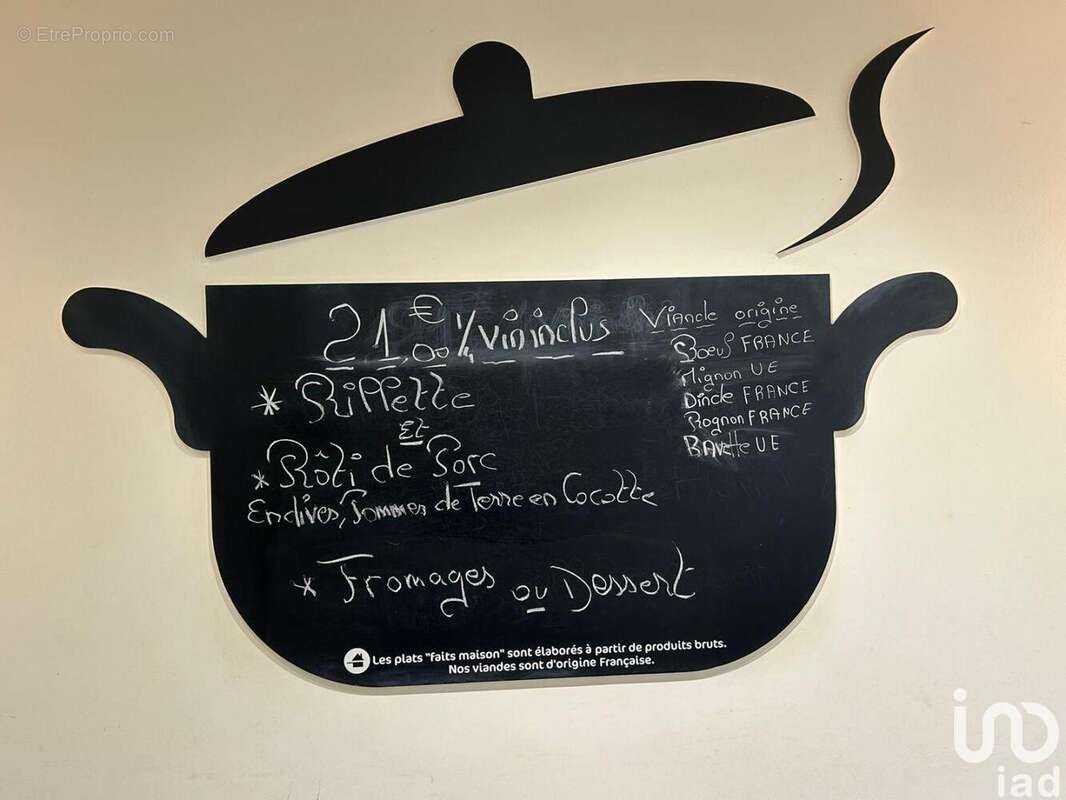 © EtreProprio.com
21,00 € 1/4 vin inclus
* Rillette
Et
* Rôti de Porc
Endives, Pommes de Terre en Cocotte
* Fromages ou Dessert
Viande origine
Boeuf FRANCE
Mignon UE
Dinde FRANCE
Rognon FRANCE
BAvette UE
Les plats "faits maison" sont élaborés à partir de produits bruts.
Nos viandes sont d'origine Française.
iad